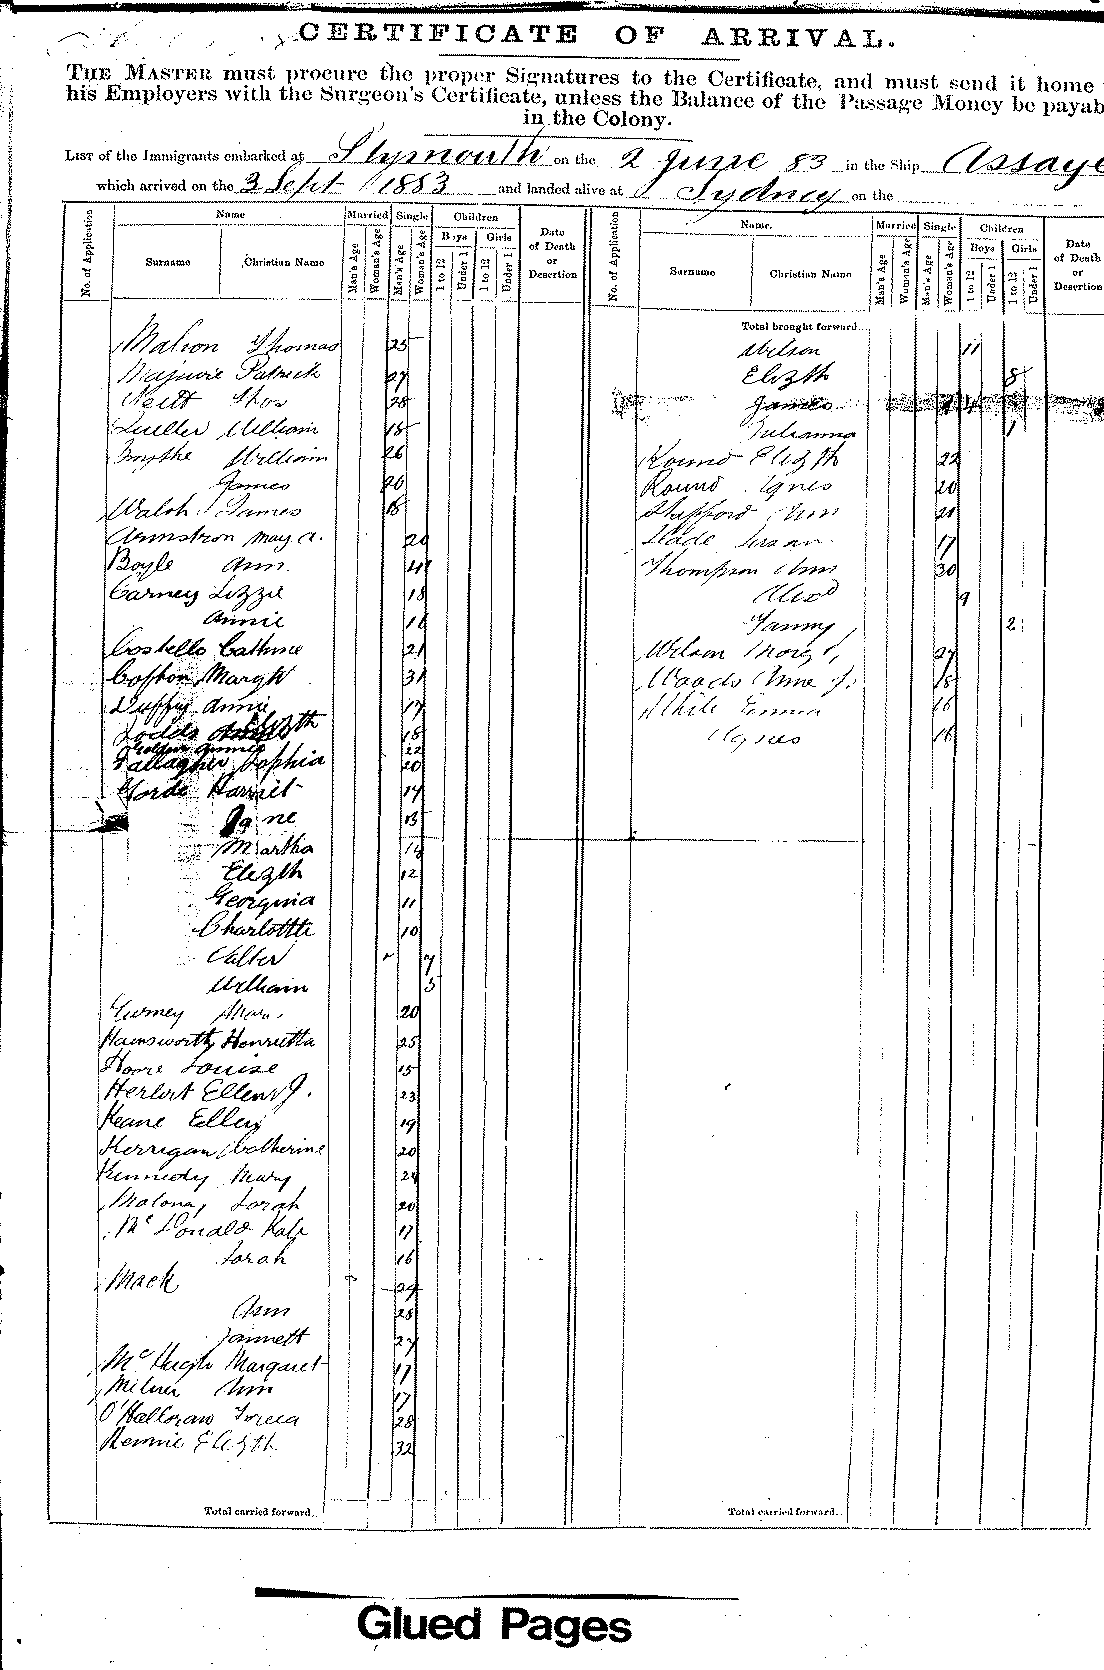 CERTIFICATE OF ARRIVAL.
THE MASTER must procure the proper Signatures to the Certificate, and must send it home
his Employers with the Surgeon's Certificate, unless the Balance of the Passage Money be payab
in the Colony.
LIST of the Immigrants embarked at Plymouth on the 2 June 83 in the Ship Assaye
which arrived on the 3 Sept 1883 and landed alive at Sydney on the
No. of Application Name Married Single Children Date of Death or Desertion
Surname Christian Name Man's Age Woman's Age Man's Age Woman's Age Boys 1 to 12 Under 1 Girls 1 to 12 Under 1
Mahon Thomas 25
Patrick 27
28
William 18
William 26
James 20
Walsh James 18
May A. 20
Boyle Ann 41
Carney Lizzie 18
Annie 16
Costello Cathrine 21
Margt 31
Duffy Annie 17
Dodds Elizth 18
22
Gallagher Sophia 20
Harriet 17
Jane 15
Martha 14
Elizth 12
Georgina 11
Charlotte 10
Walter 7
William 5
Gurney 20
Hainsworth Henrietta 25
Hoare Louise 15
Herbert Ellen J. 23
Keane Ellen 19
Kerrigan Catherine 20
Kennedy Mary 24
Malony Sarah 20
McDonald Kate 17
Sarah 16
Mack 29
Ann 28
Jannett 27
McHugh Margaret 17
Milner Ann 17
O'Halloran 28
Rennie Elizth 32
Total carried forward.
No. of Application Name. Married Single Children Date of Death or Desertion
Surname Christian Name Man's Age Woman's Age Man's Age Woman's Age Boys 1 to 12 Under 1 Girls 1 to 12 Under 1
Total brought forward
Wilson 11
Elizth 8
James 4
Julianna 1
Round Elizth 22
Round Agnes 20
Ann 21
Slade Susan 17
Thompson Ann 30
Alexd 9
Fanny 2
Wilson 27
Woods Anne J. 18
White Emma 16
Agnes 16
Total carried forward
Glued Pages